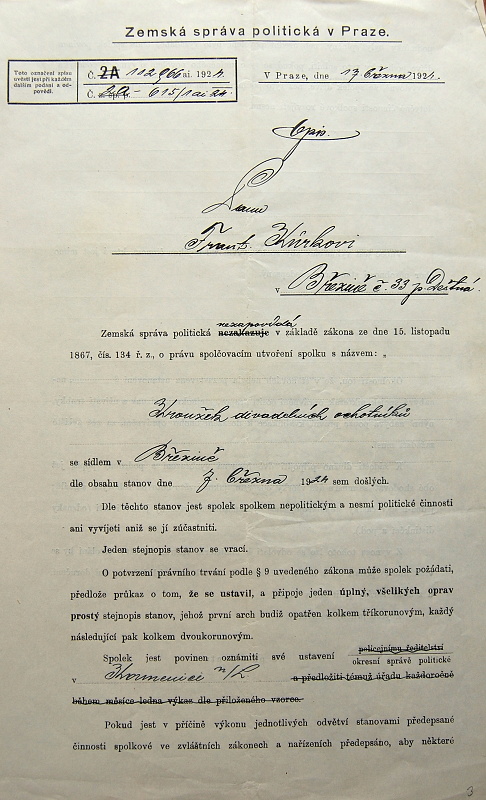 Zemská správa politická v Praze.
Toto označení spisu
uvésti jest při každém
dalším podání a od-
povědi.
Č. 2A 112966 ai. 1924.
Č. 2A - 615/1 ai 24
V Praze, dne 13. března 1924.
Opis.
Panu
Frant. Kůrkovi
v Březině č. 33 p. Deštná.
nezapovídá
Zemská správa politická nezakazuje v základě zákona ze dne 15. listopadu
1867, čís. 134 ř. z., o právu spolčovacím utvoření spolku s názvem: „
Kroužek divadelních ochotníků
se sídlem v Březině
dle obsahu stanov dne 7. března 1924 sem došlých.
Dle těchto stanov jest spolek spolkem nepolitickým a nesmí politické činnosti
ani vyvíjeti aniž se jí zúčastniti.
Jeden stejnopis stanov se vrací.
O potvrzení právního trvání podle § 9 uvedeného zákona může spolek požádati,
předlože průkaz o tom, že se ustavil, a připoje jeden úplný, všelikých oprav
prostý stejnopis stanov, jehož první arch budiž opatřen kolkem tříkorunovým, každý
následující pak kolkem dvoukorunovým.
Spolek jest povinen oznámiti své ustavení policejnímu ředitelství
okresní správě politické
v Kamenici n/L a předložiti témuž úřadu každoročně
během měsíce ledna výkaz dle přiloženého vzorce.
Pokud jest v příčině výkonu jednotlivých odvětví stanovami předepsané
činnosti spolkové ve zvláštních zákonech a nařízeních předepsáno, aby některé
3